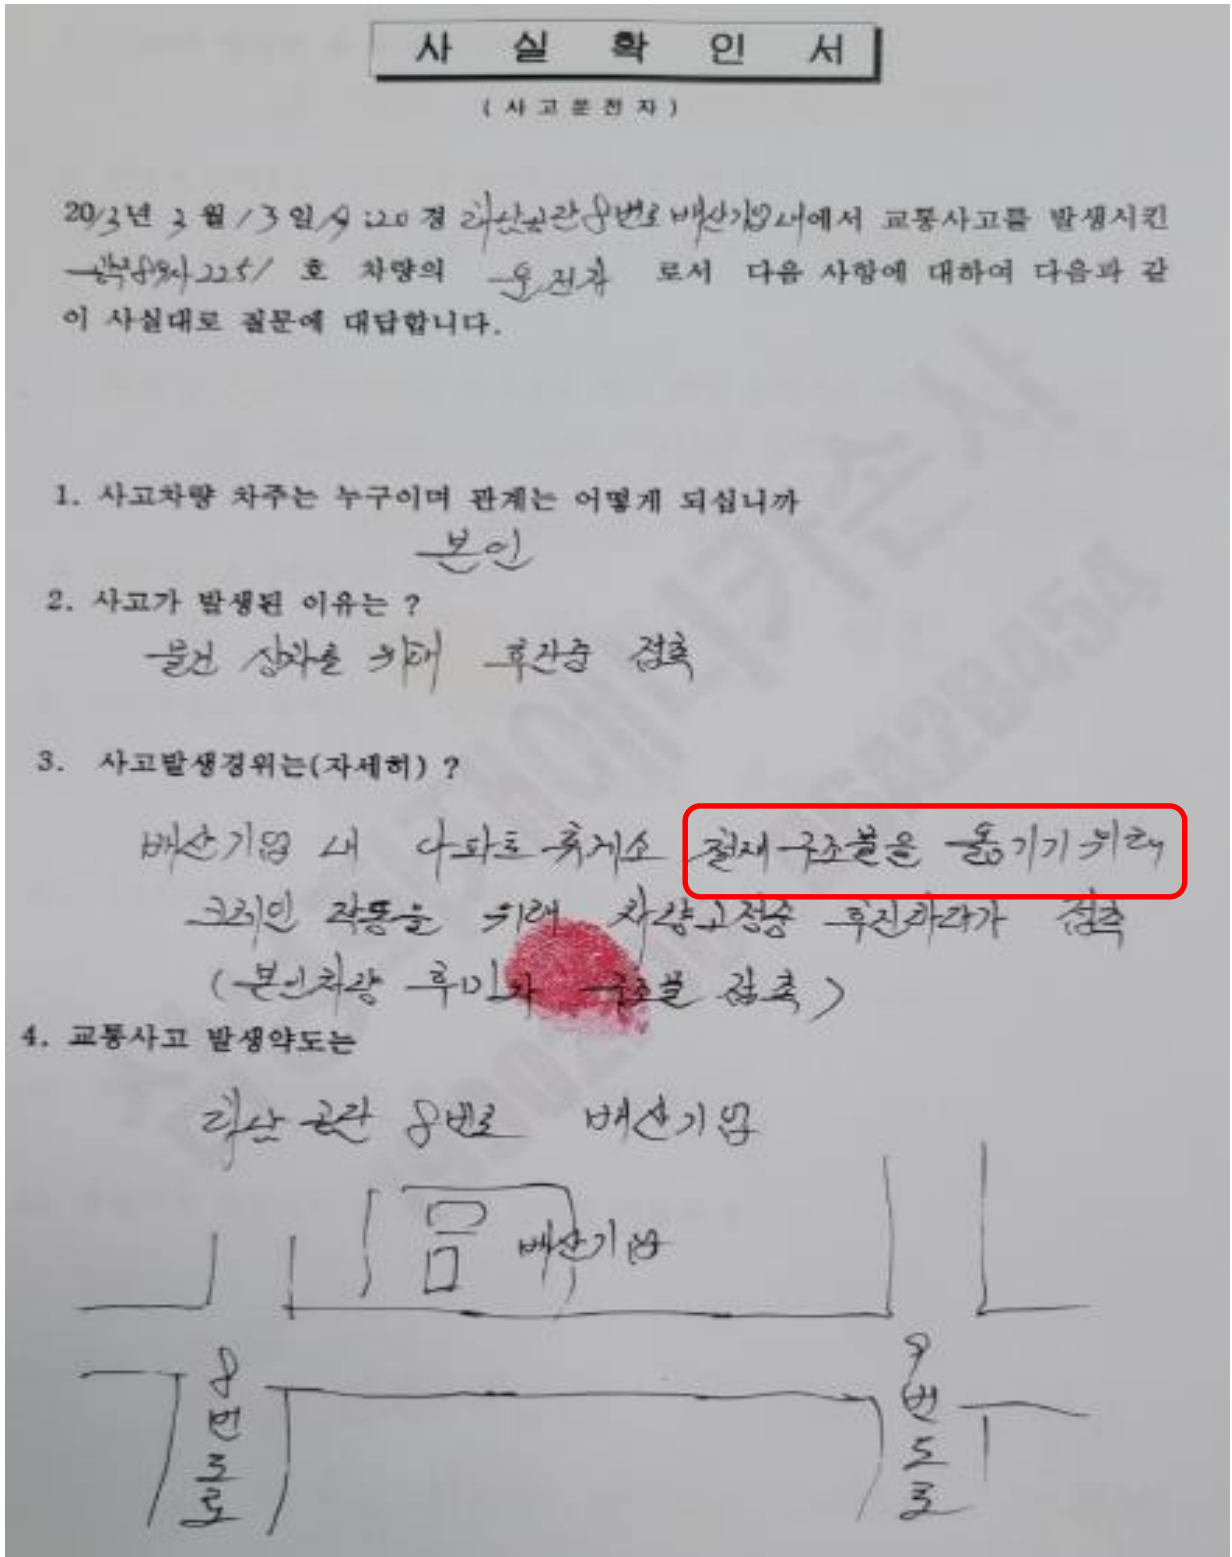 사 실 확 인 서
( 사 고 운 전 자 )
2013년 3월 13일 19:20경 하남공단 8번로 배산기업 내에서 교통사고를 발생시킨
2251 호 차량의 운전자 로서 다음 사항에 대하여 다음과 같
이 사실대로 질문에 대답합니다.
1. 사고차량 차주는 누구이며 관계는 어떻게 되십니까
본인
2. 사고가 발생된 이유는 ?
물건 상차를 위해 후진중 접촉
3. 사고발생경위는(자세히) ?
배산기업 내 휴게소 철재구조물을 옮기기 위해
크레인 작동을 위해 차량고정중 후진하다가 접촉
(본인차량 후미가 구조물 접촉)
4. 교통사고 발생약도는
하남공단 8번로 배산기업
배산기업
8번도로
9번도로